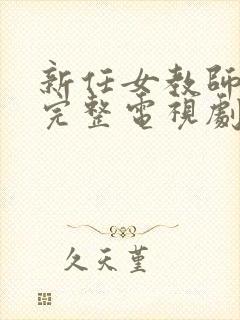 新任女教師
完整電視劇
久天堇